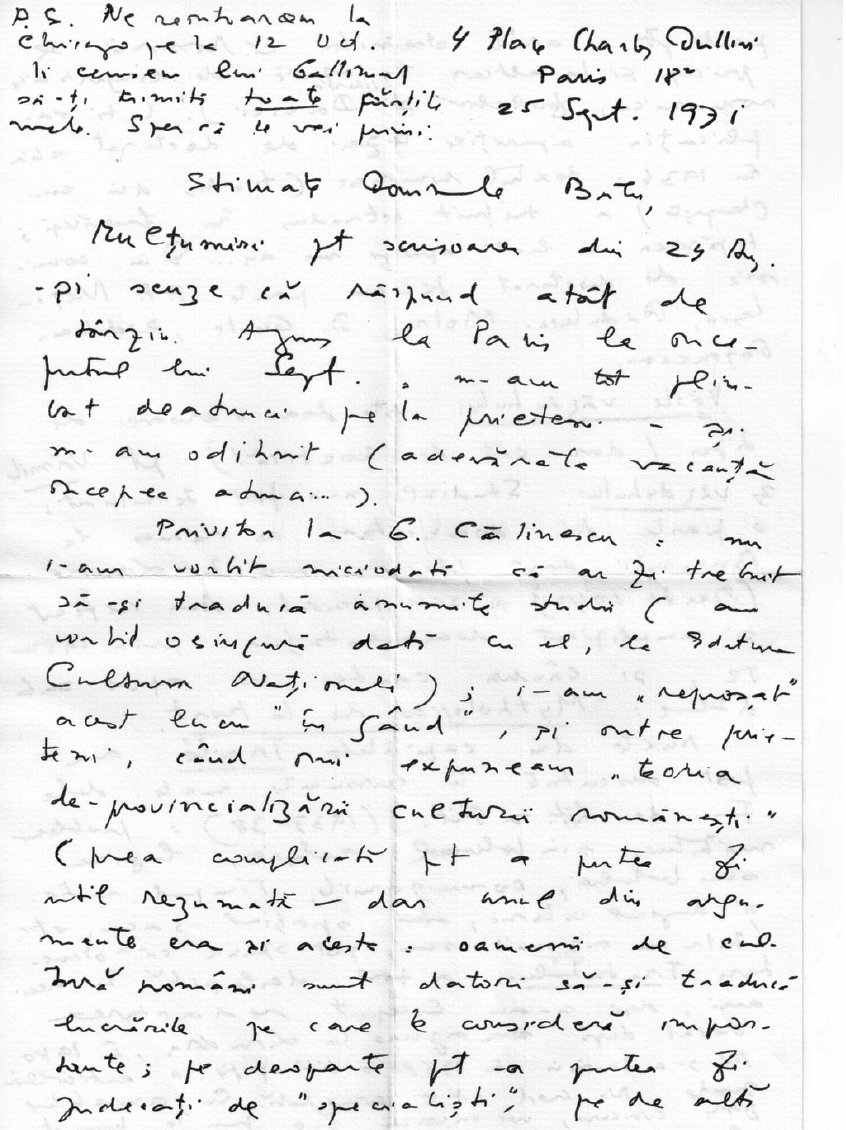 P.S. Ne reîntoarcem la
Chicago pe la 12 Oct.
Ii cerusem lui Gallimard
să-ţi trimită toate cărţile
mele. Sper că le vei primi!
4 Place Charles Dullin
Paris 18e
25 Sept. 1971
Stimate Domnule
Mulţumiri pt scrisoarea din 24 Aug.
- şi scuze că răspund atât de
târziu. Ajuns la Paris la înce-
putul lui Sept., m-am tot plim-
bat de atunci pe la prieteni - şi
m-am odihnit (adevărata vacanţă
începea atunci...).
Privitor la G. Călinescu: nu
i-am vorbit niciodată că ar fi trebuit
să-şi traducă anumite studii (am
vorbit o singură dată cu el, la Editura
Cultura Naţională); i-am "reproşat"
acest lucru "în gând", şi între prie-
teni, când îmi expuneam "teoria
de-provincializării culturii româneşti"
(prea complicată pt a putea fi
util rezumată - dar unul din argu-
mente era şi acesta: oamenii de cul-
tură români sunt datori să-şi traducă
lucrările pe care le consideră impor-
tante; pe deoparte pt a putea fi
judecaţi de "specialişti", pe de altă